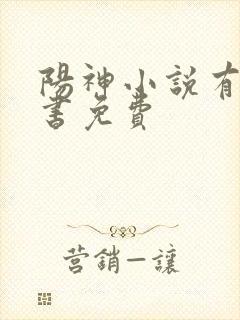 陽神小説有
書免費
営銷—讓